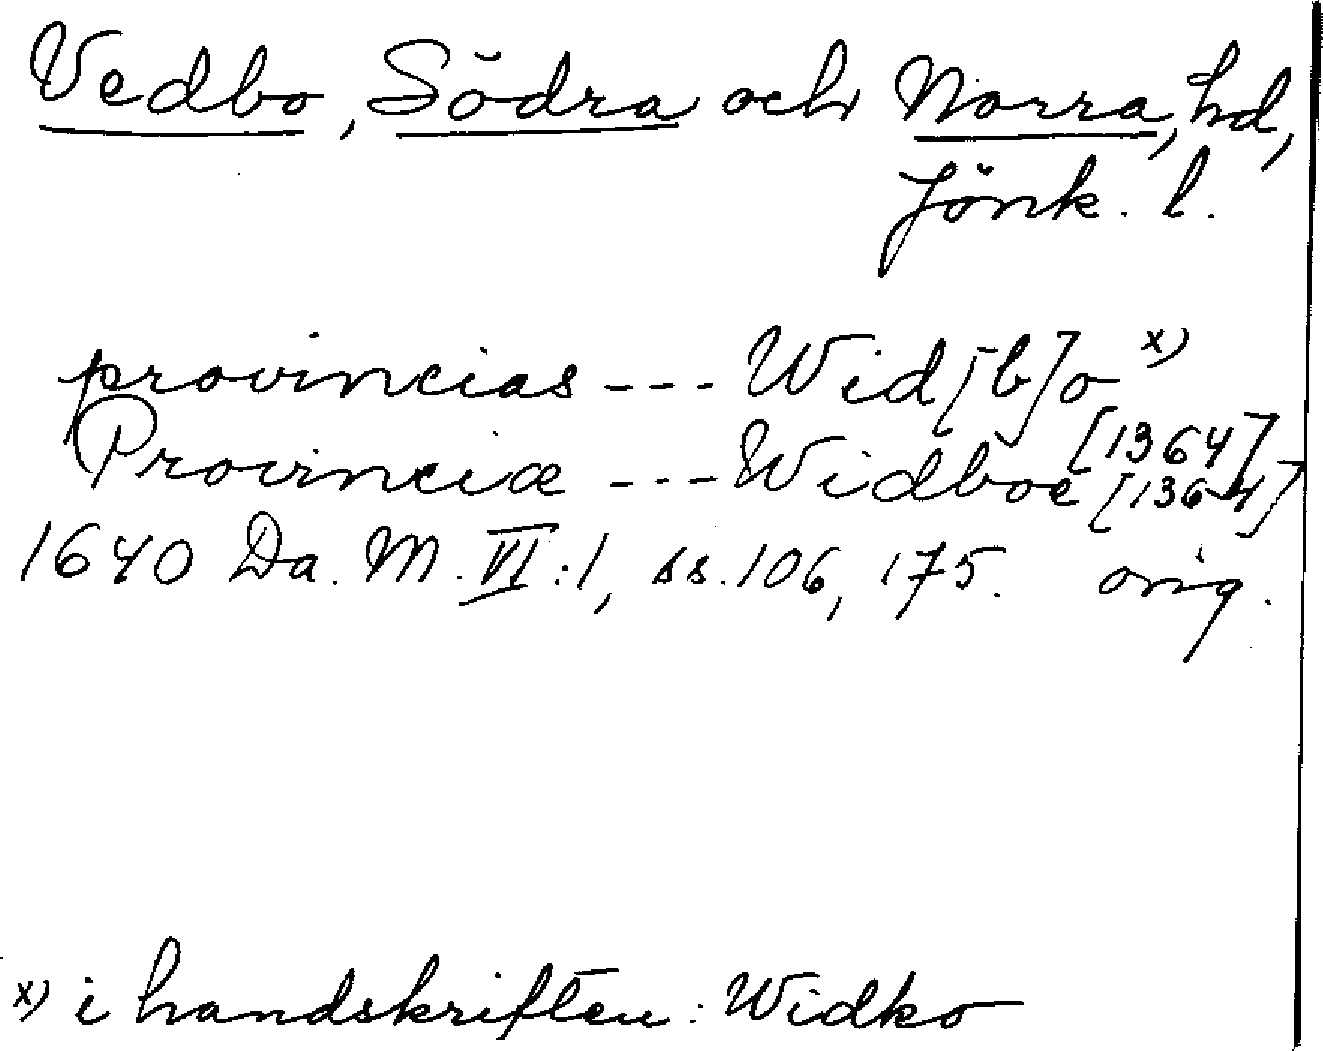 Vedbo, Södra och Norra, hd,
Jönk. l.
provincias --- Wid[b]o x)
[1364]
Provinciæ --- Widboe [1364]
1640 Da. M. VI:1, ss. 106, 175. orig.
x) i handskriften: Widko